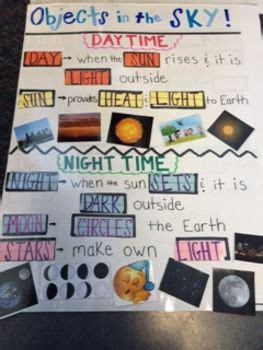 Objects in the SKY!
DAYTIME
DAY → when the SUN rises & it is
LIGHT outside
SUN → provides HEAT & LIGHT to Earth
NIGHT TIME
NIGHT → when the sun SETS & it is
DARK outside
MOON → CIRCLES the Earth
STARS → make own LIGHT